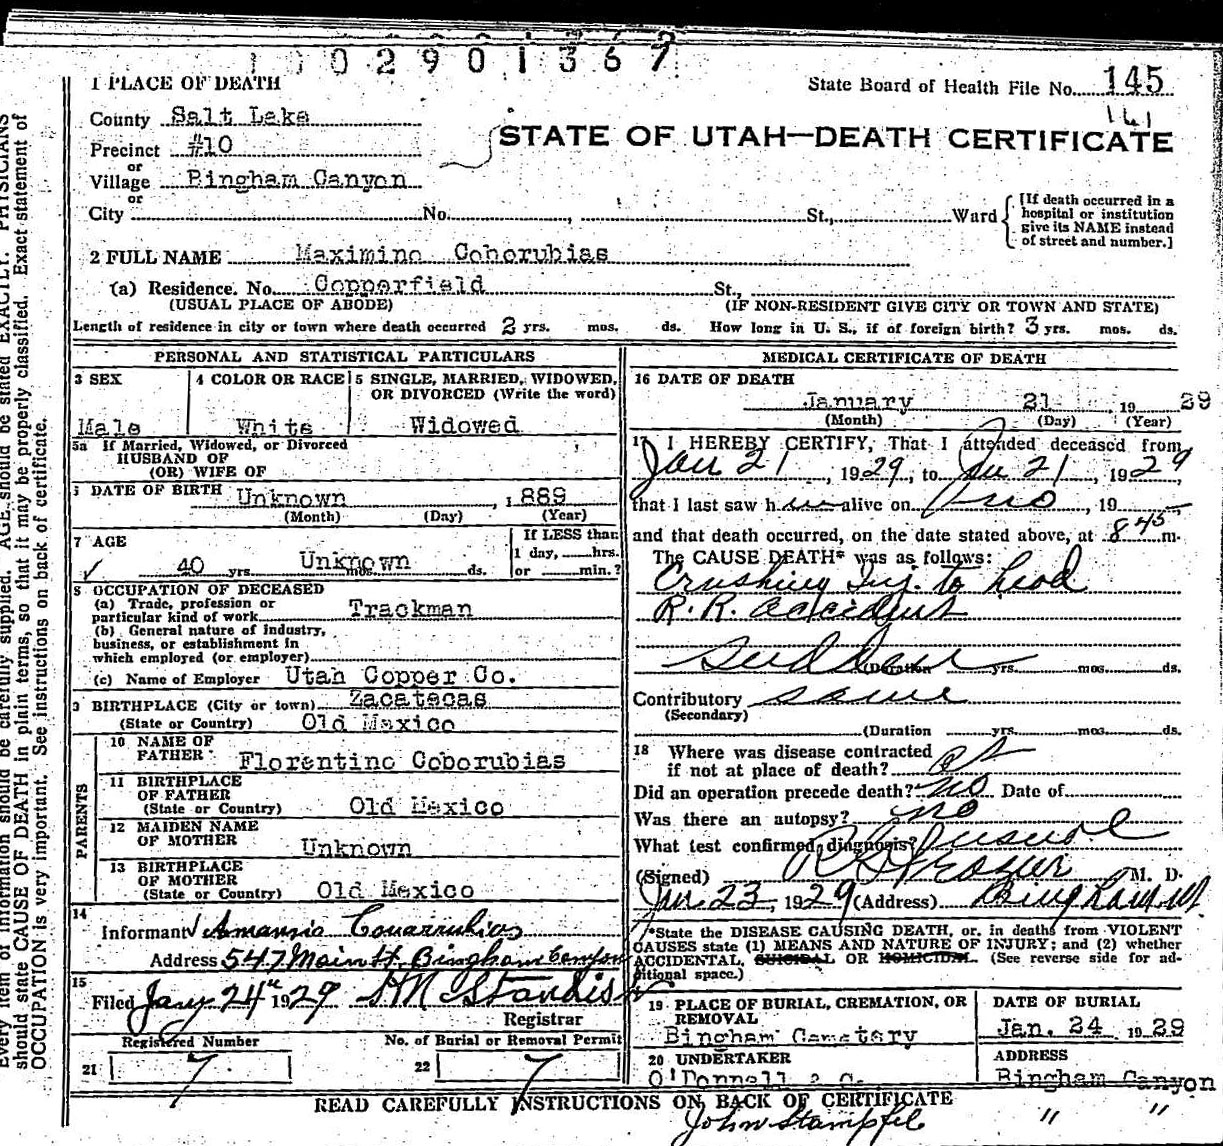 1 0 0 2 9 0 1 3 6 7
1 PLACE OF DEATH
State Board of Health File No. 145
141
County Salt Lake
STATE OF UTAH—DEATH CERTIFICATE
Precinct #10
or
Village Bingham Canyon
or
City No. , St., Ward
[If death occurred in a
hospital or institution
give its NAME instead
of street and number.]
2 FULL NAME Maximino Coborubias
(a) Residence. No. Copperfield St.,
(USUAL PLACE OF ABODE) (IF NON-RESIDENT GIVE CITY OR TOWN AND STATE)
Length of residence in city or town where death occurred 2 yrs. mos. ds. How long in U. S., if of foreign birth? 3 yrs. mos. ds.
PERSONAL AND STATISTICAL PARTICULARS
3 SEX
Male
4 COLOR OR RACE
White
5 SINGLE, MARRIED, WIDOWED,
OR DIVORCED (Write the word)
Widowed
5a If Married, Widowed, or Divorced
HUSBAND OF
(OR) WIFE OF
DATE OF BIRTH Unknown , 1889
(Month) (Day) (Year)
7 AGE
40 yrs. Unknown mos. ds.
If LESS than
1 day, hrs.
or min.?
8 OCCUPATION OF DECEASED
(a) Trade, profession or
particular kind of work Trackman
(b) General nature of industry,
business, or establishment in
which employed (or employer)
(c) Name of Employer Utah Copper Co.
9 BIRTHPLACE (City or town) Zacatecas
(State or Country) Old Mexico
PARENTS
10 NAME OF
FATHER Florentino Coborubias
11 BIRTHPLACE
OF FATHER
(State or Country) Old Mexico
12 MAIDEN NAME
OF MOTHER Unknown
13 BIRTHPLACE
OF MOTHER
(State or Country) Old Mexico
14
Informant Amansio Couarrubias
Address 547 Main St. Bingham Canyon
15
Filed Jany 24th 1929 H N Standish
Registrar
Registered Number No. of Burial or Removal Permit
21 7 22 7
MEDICAL CERTIFICATE OF DEATH
16 DATE OF DEATH
January 21 , 19 29
(Month) (Day) (Year)
17 I HEREBY CERTIFY, That I attended deceased from
Jan 21 , 1929, to Jan 21 , 1929
that I last saw him alive on no , 19
and that death occurred, on the date stated above, at 845 m.
The CAUSE DEATH* was as follows:
Crushing Inj. to head
R. R. accident
sudden (Duration yrs. mos. ds.
Contributory same
(Secondary)
(Duration yrs. mos. ds.
18 Where was disease contracted
if not at place of death? at
Did an operation precede death? no Date of
Was there an autopsy? no
What test confirmed diagnosis? usual
(Signed) R G Frazier M. D.
Jan. 23, 1929 (Address) Bingham Ut
*State the DISEASE CAUSING DEATH, or, in deaths from VIOLENT
CAUSES state (1) MEANS AND NATURE OF INJURY; and (2) whether
ACCIDENTAL, SUICIDAL OR HOMICIDAL. (See reverse side for ad-
ditional space.)
19 PLACE OF BURIAL, CREMATION, OR
REMOVAL
Bingham Cemetery
DATE OF BURIAL
Jan. 24 1929
20 UNDERTAKER
O'Donnell & C.
ADDRESS
Bingham Canyon
READ CAREFULLY INSTRUCTIONS ON BACK OF CERTIFICATE
John Stampfel " "
Every item of information should be carefully supplied. AGE should be stated EXACTLY. PHYSICIANS
should state CAUSE OF DEATH in plain terms, so that it may be properly classified. Exact statement of
OCCUPATION is very important. See instructions on back of certificate.